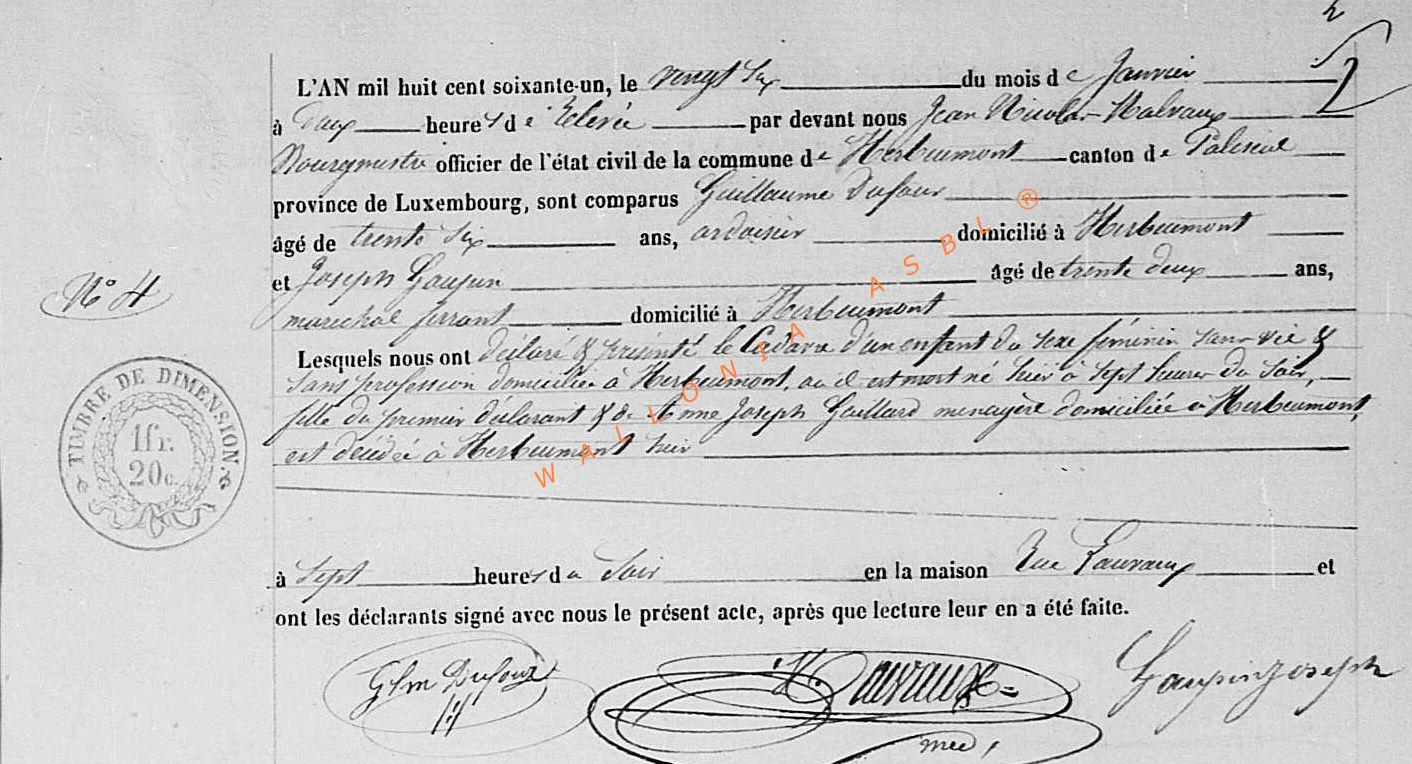 L'AN mil huit cent soixante-un, le vingt six du mois de Janvier
à deux heures de Relevée par devant nous Jean Nicolas Malvaux
Bourgmestre officier de l'état civil de la commune de Herbeumont canton de Paliseul
province de Luxembourg, sont comparus Guillaume Dufour
âgé de trente six ans, ardoisier domicilié à Herbeumont
et Joseph âgé de trente deux ans,
N° 4
marechal ferrant domicilié à Herbeumont
Lesquels nous ont déclaré & présenté le Cadavre d'un enfant du sexe féminin sans vie &
sans profession domicilié à Herbeumont, où il est mort né hier à sept heures du soir,
fille du premier déclarant & de Anne Joseph Gaillard menagère domiciliée à Herbeumont,
est décédé à Herbeumont hier
TIMBRE DE DIMENSION.
1fr.
20c.
à sept heures du Soir en la maison Rue et
ont les déclarants signé avec nous le présent acte, après que lecture leur en a été faite.
Glm Dufour
Joseph
WALLONIA ASBL ®